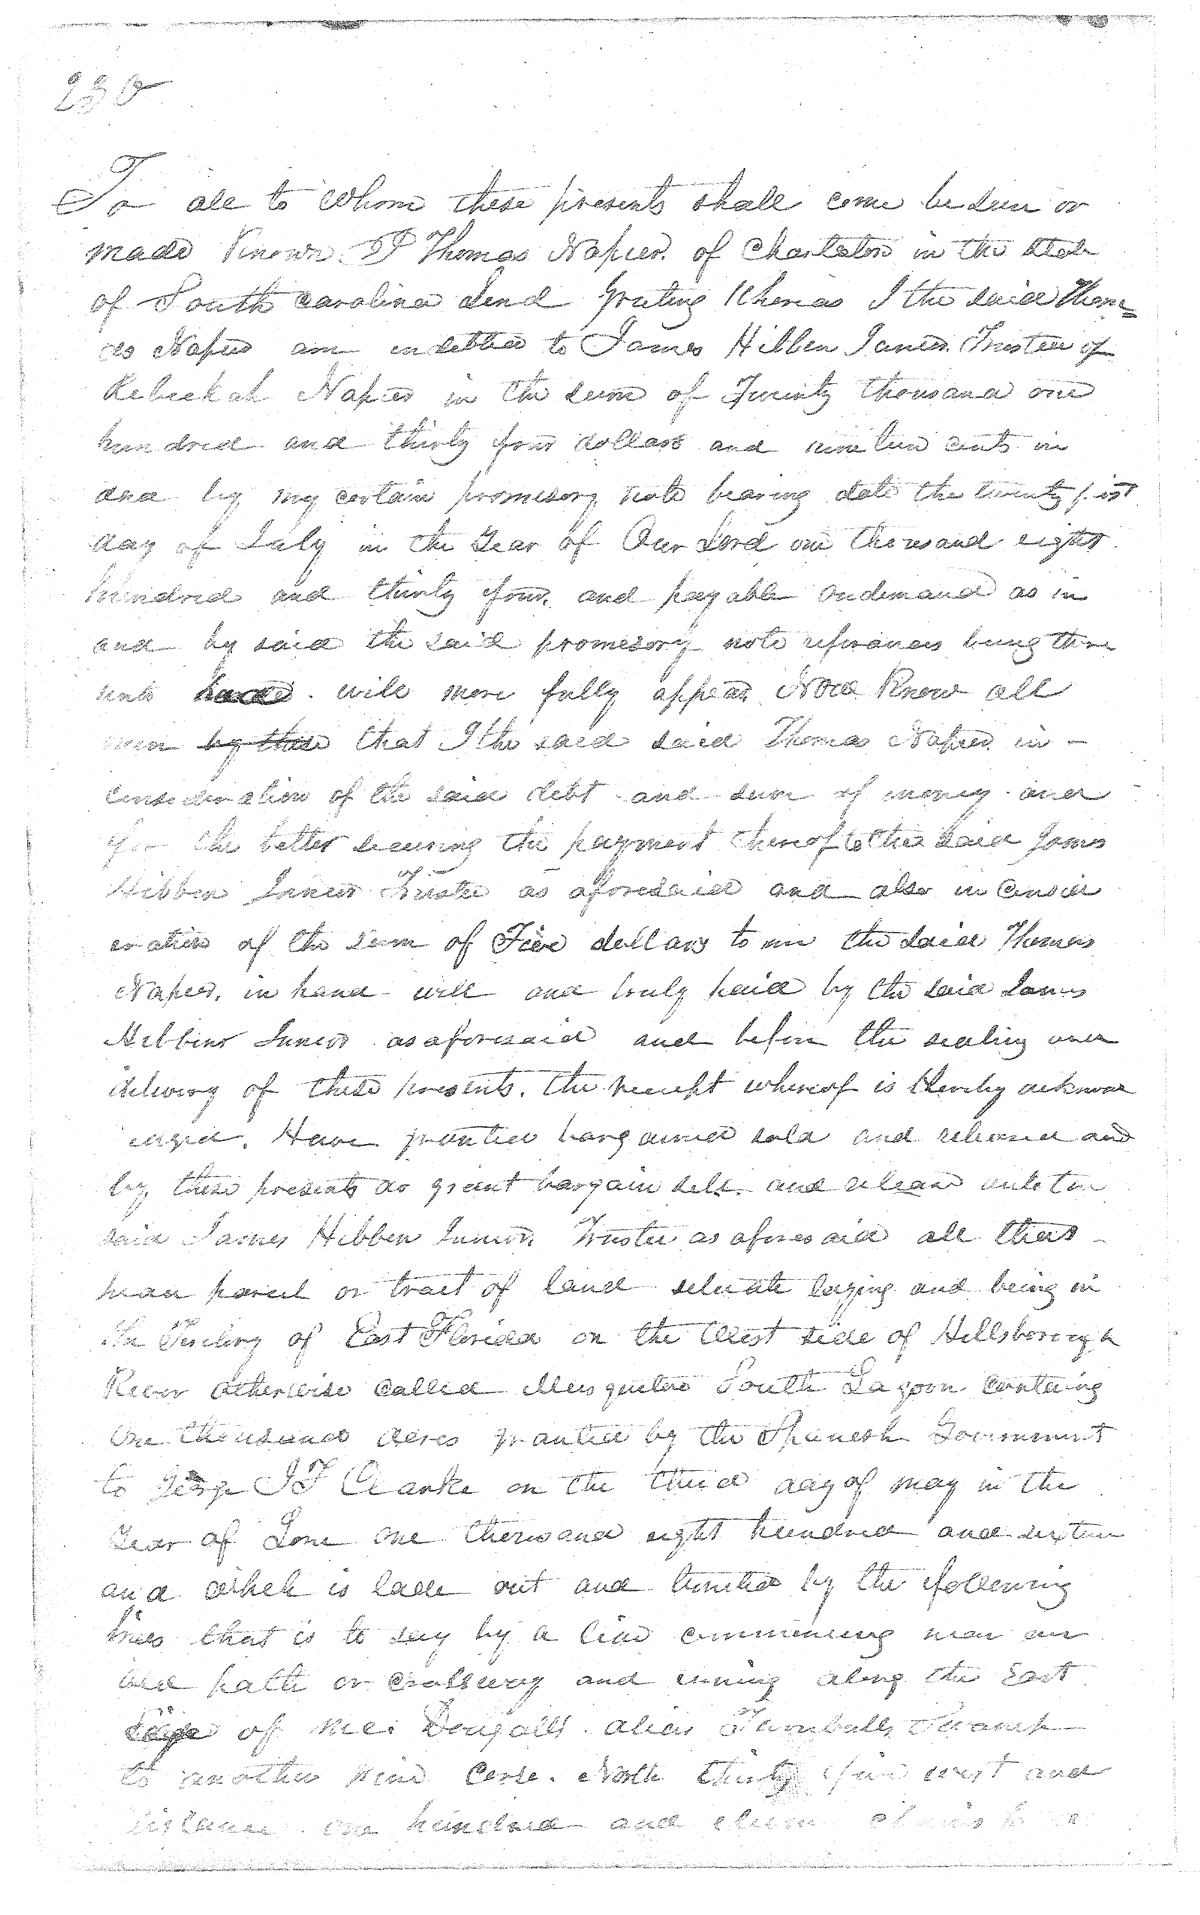 230
To all to Whom these presents shall come be seen or
made Known I Thomas Napier of Charleston in the State
of South Carolina Send Greeting Whereas I the said Thom=
as Napier am indebted to James Hibben Junior Trustee of
Rebeekah Napier in the sum of Twenty thousand one
hundred and thirty four dollars and nineteen cents in
and by my certain promisory note bearing date the twenty first
day of July in the Year of Our Lord one thousand eight
hundred and thirty four, and payable on demand as in
and by said the said promisory note referances being there
unto will more fully appear Now Know all
men by these that I the said said Thomas Napier in
consideration of the said debt and sum of money and
for the better securing the payment thereof to the said James
Hibben Junior Trustee as aforesaid and also in Consid
eration of the sum of Five dollars to me the said Thomas
Napier, in hand well and truly paid by the said James
Hibbens Junior as aforesaid and before the sealing and
delivery of these presents, the receipt whereof is hereby acknow
ledged. Have granted bargained sold and released and
by these presents do grant bargain sell and release unto the
said James Hibben Junior, Trustee as aforesaid all that
parcel or tract of land situate laying and being in
of East Florida on the West side of Hillsborough
River otherwise called Musquitoe South Lagoon containg
One thousand acres granted by the Spanish Government
to George J F Clarke on the third day of may in the
Year of one thousand eight hundred and sixteen
and which is laid out and limited by the following
lines that is to say by a line commencing near an
old path or crossway and runing along the East
side of Mc Dougalls alias Turnbulls Swamp
to another pine Corse. North thirty five west and
distance one hundred and eleven chains to a